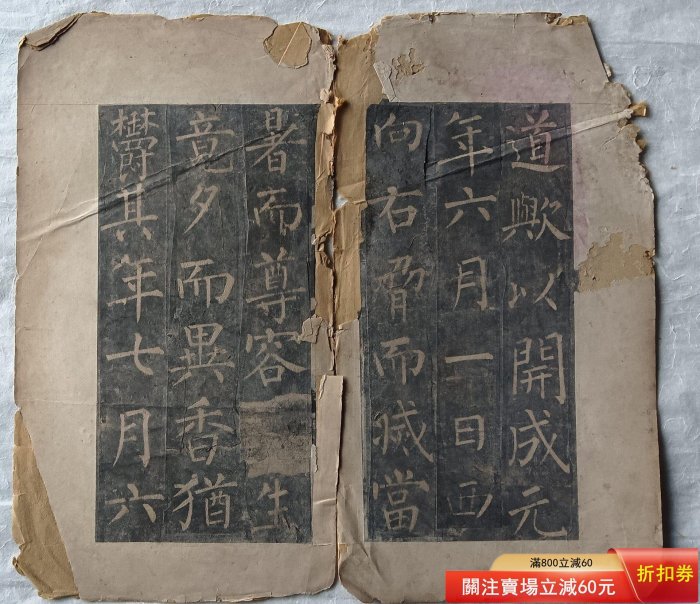 道歟以開成元
年六月一日西
向右脅而滅當
暑而尊容生
竟夕而異香猶
鬱其年七月六
滿800立減60
關注賣場立減60元
折扣券